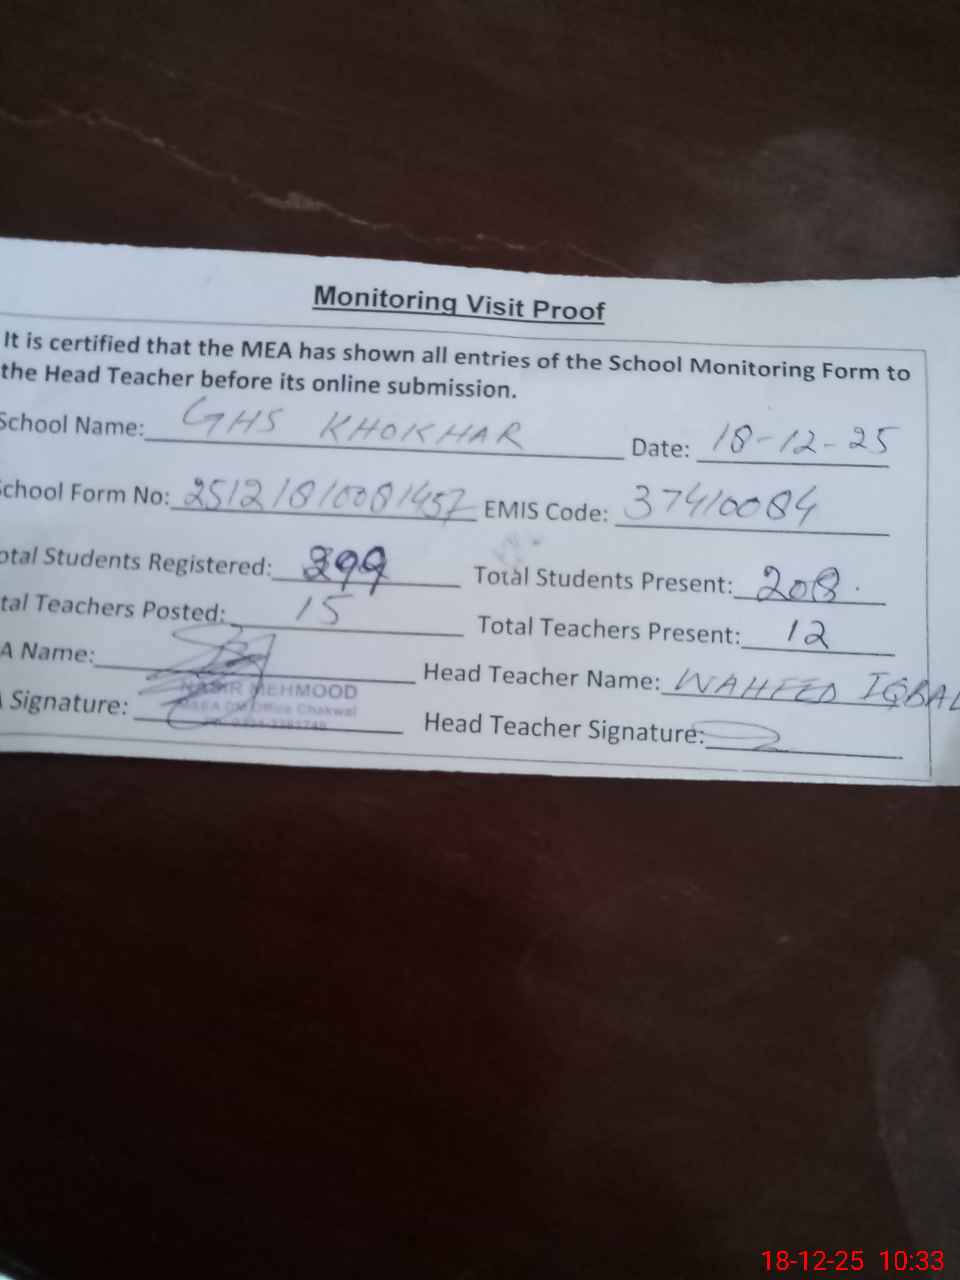 Monitoring Visit Proof
It is certified that the MEA has shown all entries of the School Monitoring Form to
the Head Teacher before its online submission.
School Name: GHS KHOKHAR Date: 18-12-25
chool Form No: EMIS Code: 37410084
otal Students Registered: Total Students Present: 208
tal Teachers Posted: 15 Total Teachers Present: 12
A Name: Head Teacher Name: WAHEED IQBAL
NASIR MEHMOOD
Signature: Head Teacher Signature:
Office Chakwal
18-12-25 10:33